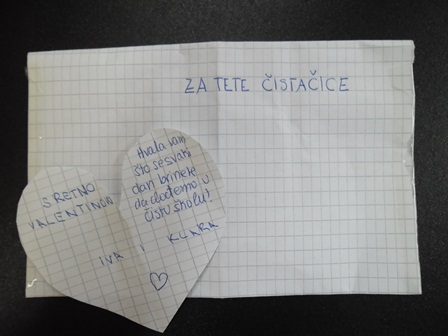 ZA TETE ČISTAČICE
SRETNO
VALENTINOVO
Hvala vam
što se svaki
dan brinete
da dođemo u
čistu školu!
IVA i KLARA